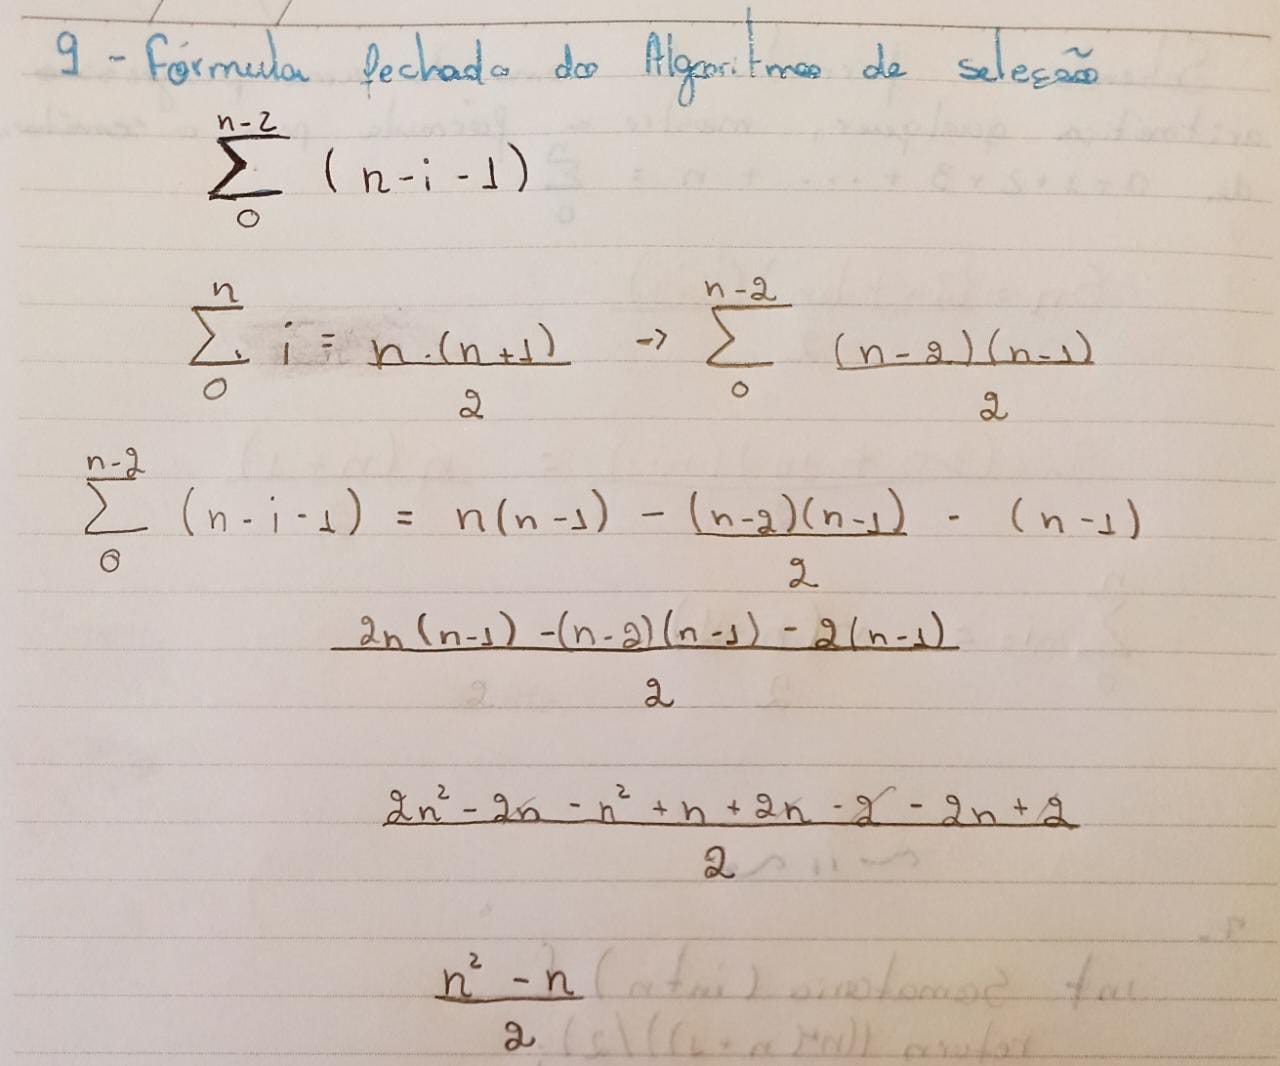 9 - Fórmula fechada do Algoritmo de seleção
n-2
∑ (n-i-1)
0
n n-2
∑ i = n.(n+1)/2 -> ∑ (n-2)(n-1)/2
0 0
n-2
∑ (n-i-1) = n(n-1) - (n-2)(n-1)/2 - (n-1)
0
2n(n-1) -(n-2)(n-1) - 2(n-1)
2
2n² - 2n - n² + n + 2n - 2 - 2n + 2
2
n² - n
2